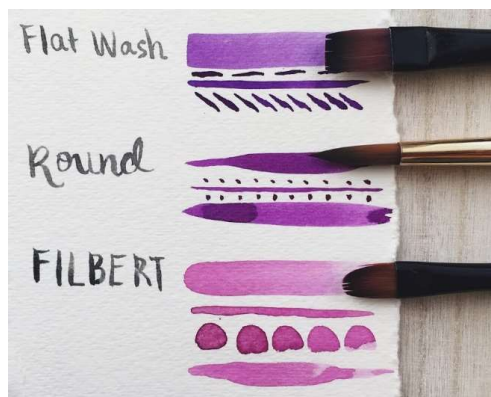 Flat Wash
Round
FILBERT